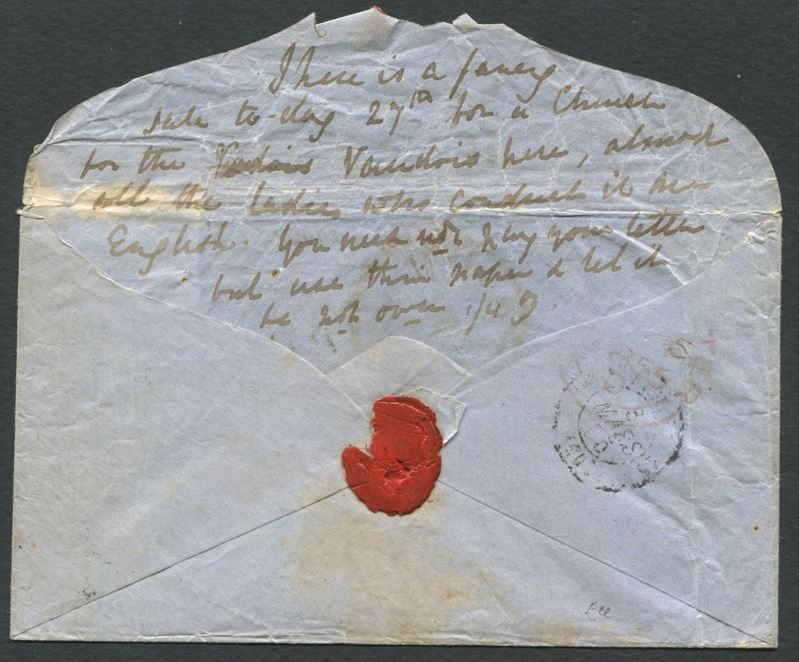 There is a fancy
sale to-day 27th for a Church
for the Vaudois Vaudois here, almost
all the ladies who conduct it are
English. You need not pay your letter
but use thin paper & let it
be not over 1/4 
MARS
Lee